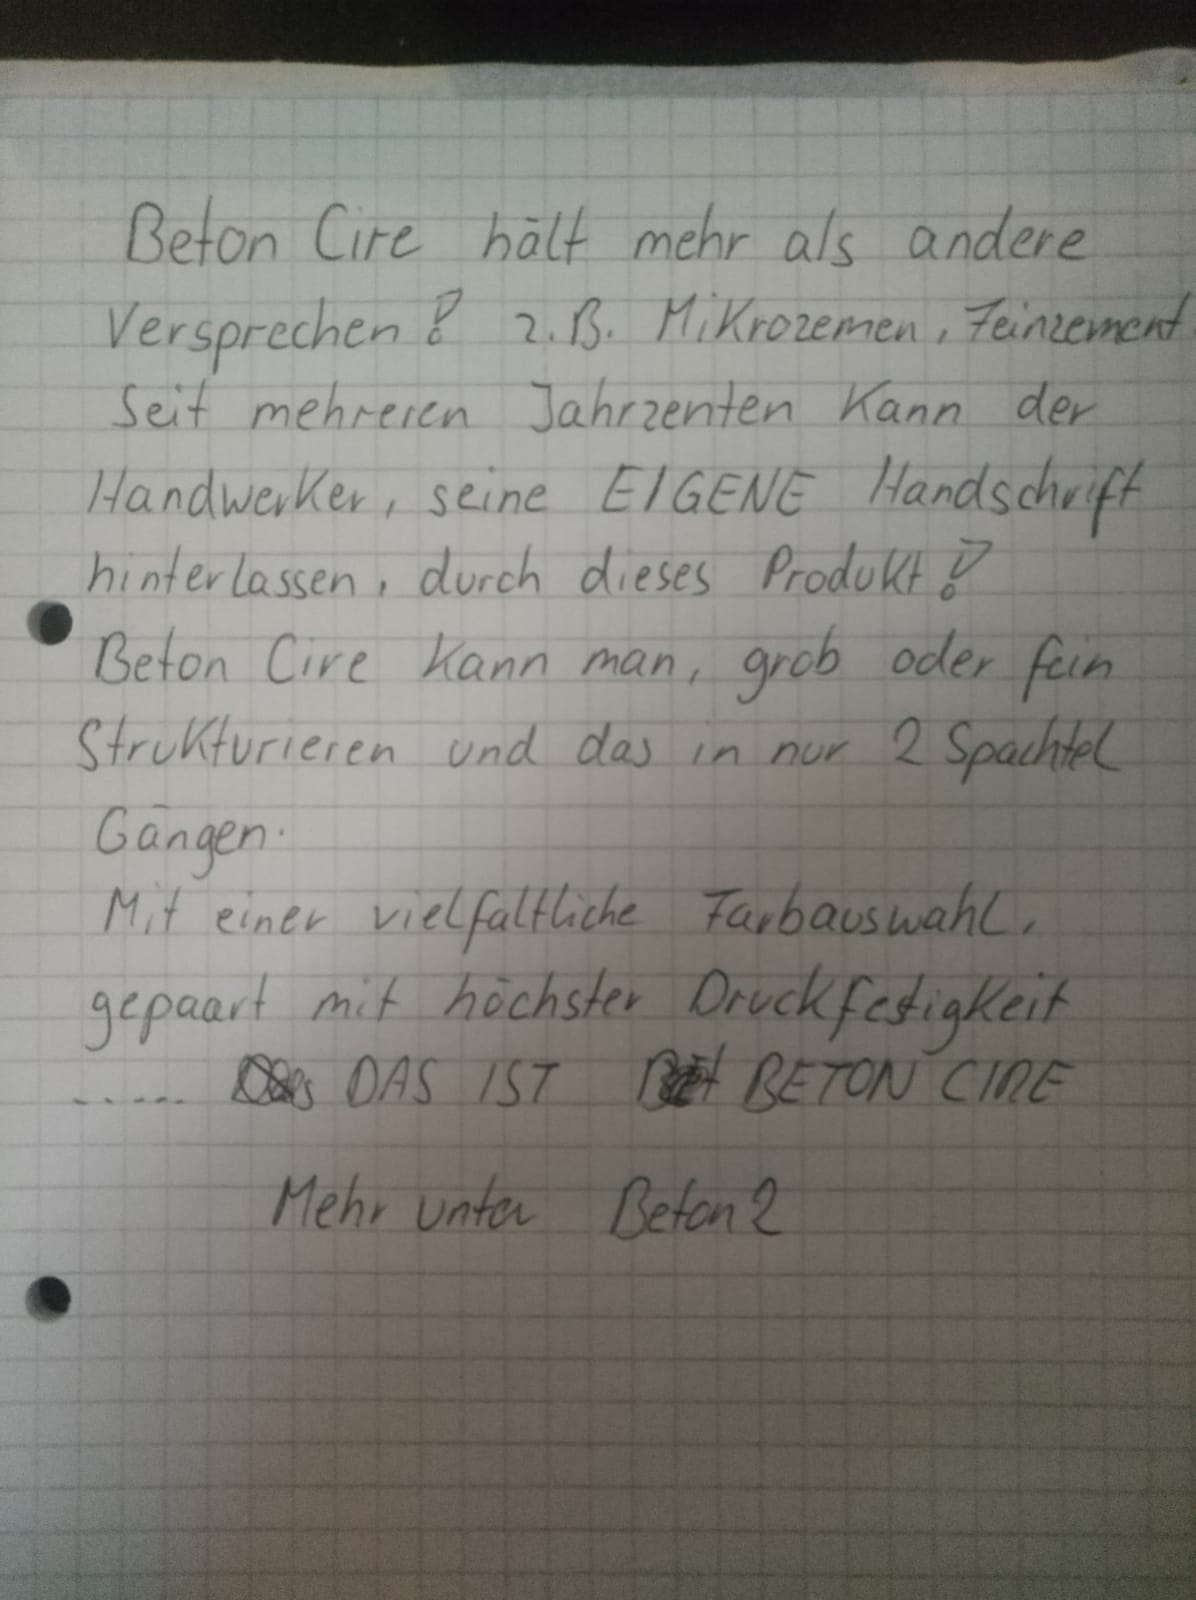 Beton Cire hält mehr als andere
Versprechen! z.B. Mikrozemen, Feinzement
Seit mehreren Jahrzenten kann der
Handwerker, seine EIGENE Handschrift
hinterlassen, durch dieses Produkt!
Beton Cire kann man, grob oder fein
Strukturieren und das in nur 2 Spachtel
Gängen.
Mit einer vielfaltliche Farbauswahl,
gepaart mit höchster Druckfestigkeit
..... DAS IST BETON CIRE
Mehr unter Beton2